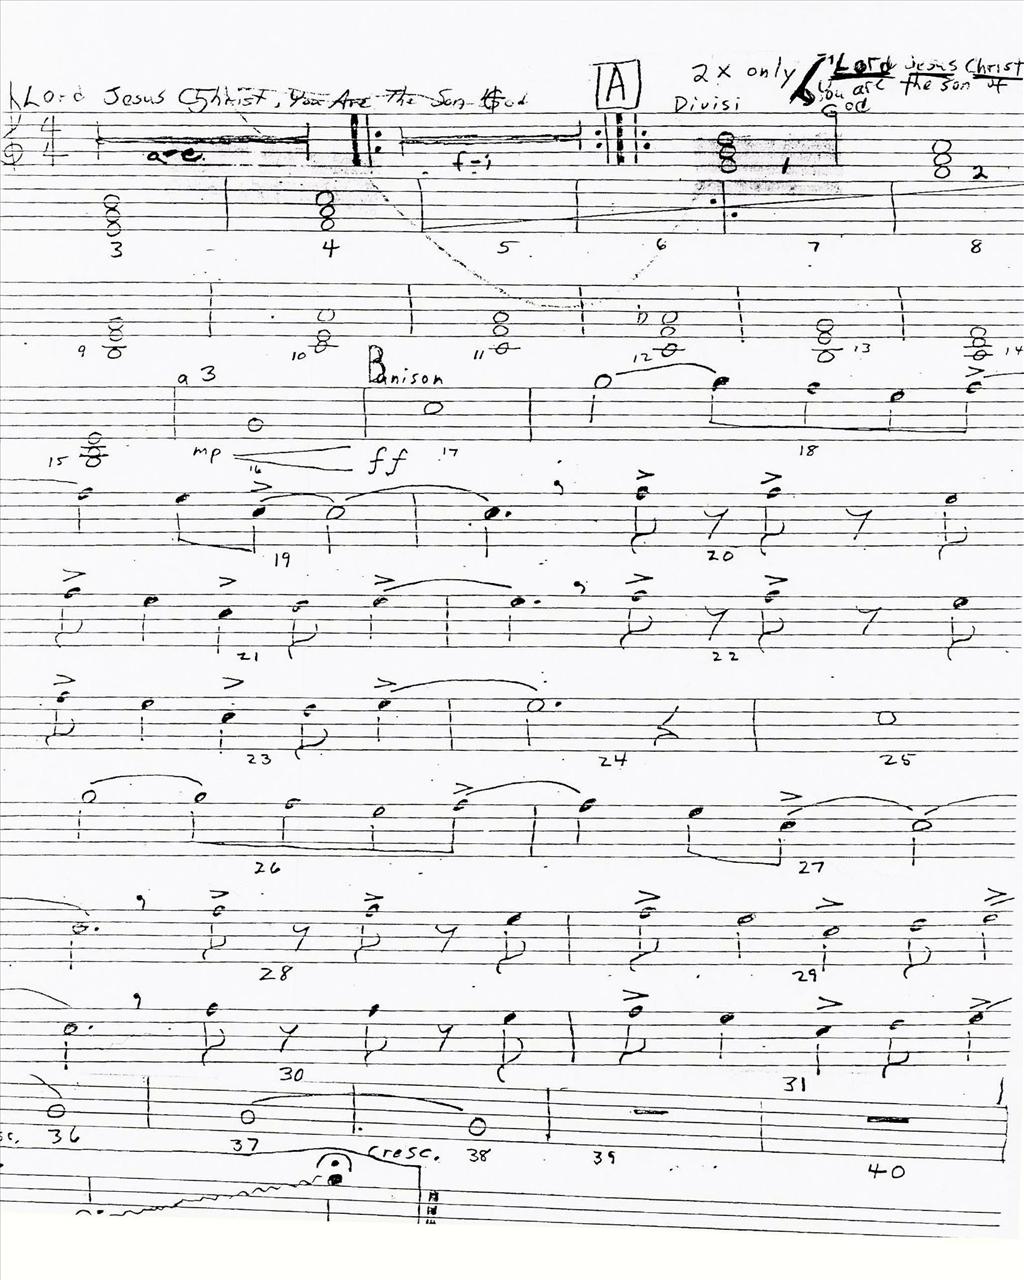 Lord Jesus Christ, You Are The Son God
A
2x only
Divisi
Lord Jesus Christ
You are the son of
God
4
4
a-e
f-j
1
2
3
4
5
6
7
8
9
10
11
12
13
14
a 3
B
unison
15
mp
16
ff
17
18
19
20
21
22
23
24
25
26
27
28
29
30
31
sc.
36
37
cresc.
38
39
40